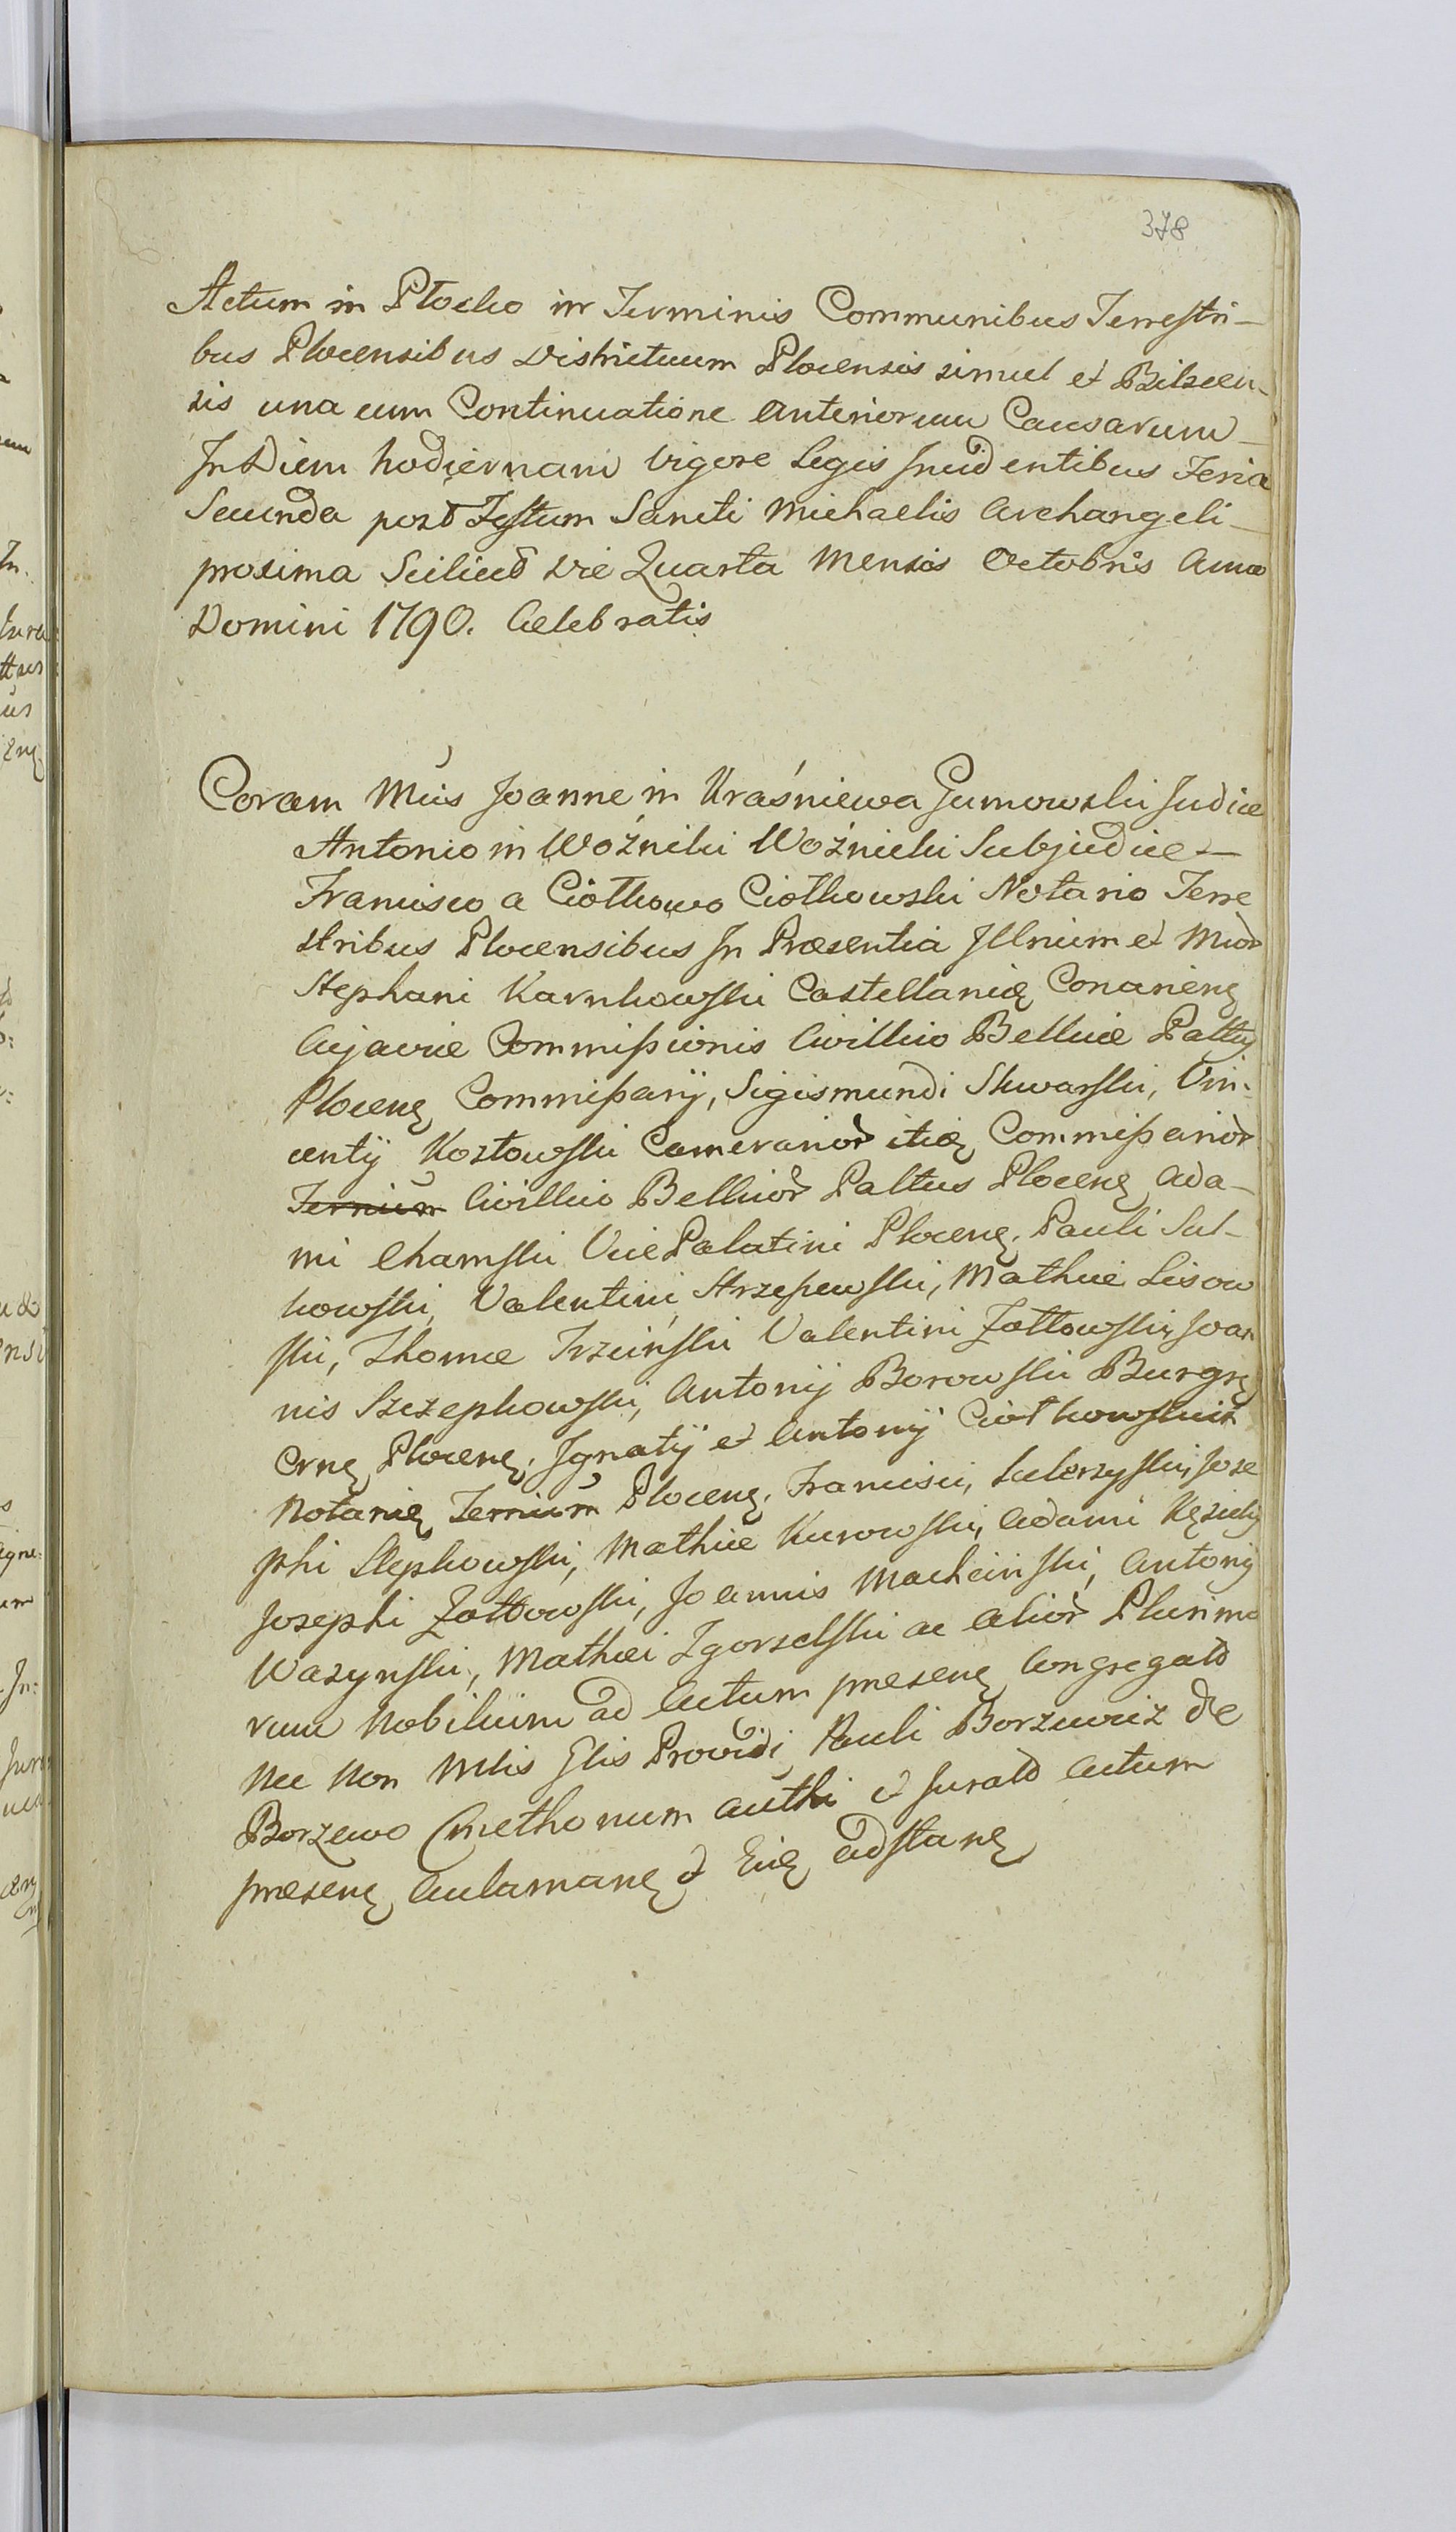 378
Actum in Płocko in Terminis Communibus Terrestri-
bus Plocensibus Districtuum Plocensis simul et Bilscen-
sis una cum Continuatione Anteriorum Causarum
In Diem hodiernam vigore Legis Incidentibus Feria
Secunda post Festum Sancti Michaelis Archangeli
proxima Scilicet Die Quarta Mensis Octobris Anno
Domini 1790. Celebratis
Coram Mcis Joanne in Kraśniewa Gumowski Judice
Antonio in Woźniki Woźnicki Subjudice
Francisco a Ciołkowo Ciołkowski Notario Terre
stribus Plocensibus In Præsentia Illrium et Mcor
Stephani Karnkowski Castellanię Conariens
Cujaviæ Commissionis Civillico Bellicæ Pallus
Plocens Commissarij, Sigismundi Skwarski, Vin-
centij Kozłowski Camerarior itię Commissarior
Civillico Bellicior Pallus Plocens Ada-
mi Chamski Vice Palatini Plocens. Pauli Sul-
kowski, Valentini Strzeszewski, Mathiæ Lisow
ski, Thomæ Trzciński Valentini Żołtowski, Joan
nis Szczepkowski, Antonij Borowski Burgrę
Crnę Plocenę. Ignatij et Antonij Ciołkowskich
Notarię Terrium Plocenę. Francisci, Jose
phi Slepkowski, Mathiæ Kurowski, Adami
Josephi Żołtowski, Joannis Macheinski, Antonij
Wazynski, Mathæi Zgorzelski ac Alior Plurimo
rum Nobilium ad Actum presenę Congregator
Nec Non Mlis Glis Providi Pauli Borzewicz de
Borzewo Cmethonum authi et Jurato Actum
presenę Aclamanę et Eię adstanę